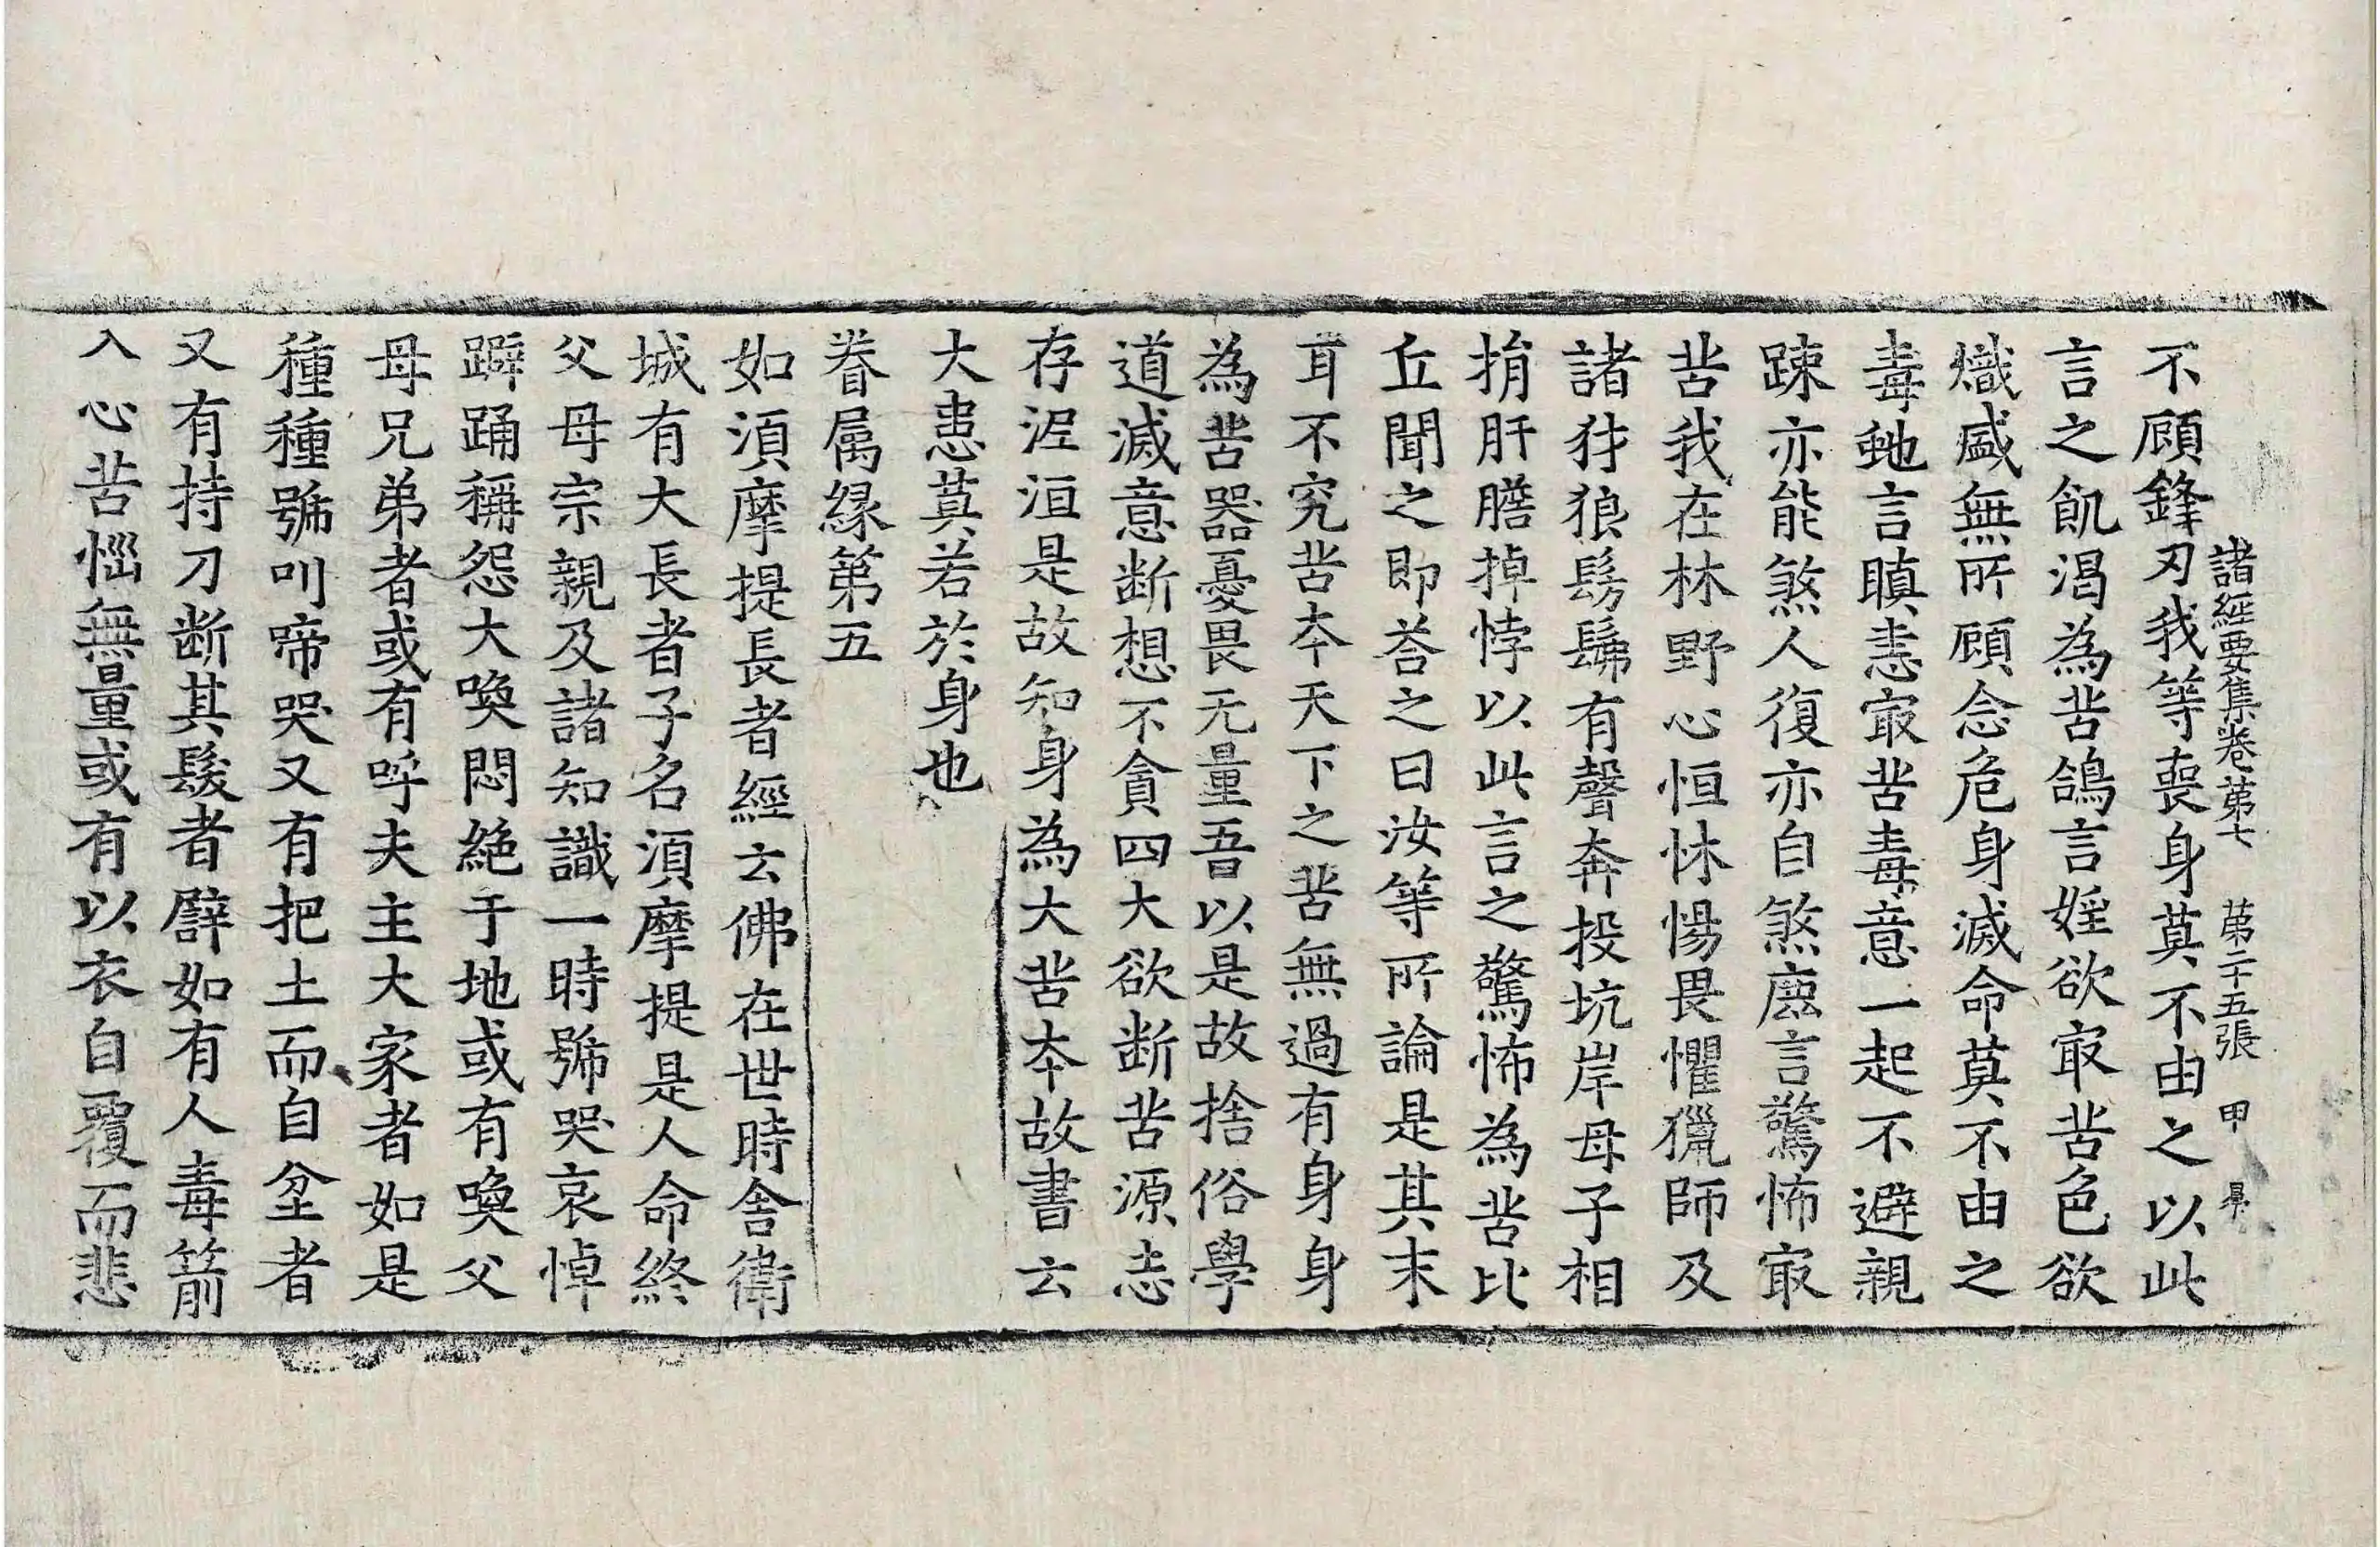 諸經要集卷第七　第二十五張　甲
不顧鋒刃我等喪身莫不由之以此
言之飢渴為苦鴿言婬欲㝡苦色欲
熾盛無所顧念危身滅命莫不由之
毒虵言瞋恚㝡苦毒意一起不避親
踈亦能煞人復亦自煞鹿言驚怖㝡
苦我在林野心恒怵惕畏懼獵師及
諸犲狼髣髴有聲奔投坑岸母子相
捐肝膽掉悸以此言之驚怖為苦比
丘聞之即荅之曰汝等所論是其末
耳不究苦夲天下之苦無過有身身
為苦器憂畏无量吾以是故捨俗學
道滅意断想不貪四大欲断苦源志
存泥洹是故知身為大苦夲故書云
大患莫若於身也
眷属緣第五
如湏摩提長者經云佛在世時舍衛
城有大長者子名湏摩提是人命終
父母宗親及諸知識一時號哭哀悼
躃踊稱怨大喚悶絕于地或有喚父
母兄弟者或有呼夫主大家者如是
種種號叫啼哭又有把土而自坌者
又有持刀断其髮者譬如有人毒箭
入心苦惱無量或有以衣自覆而悲